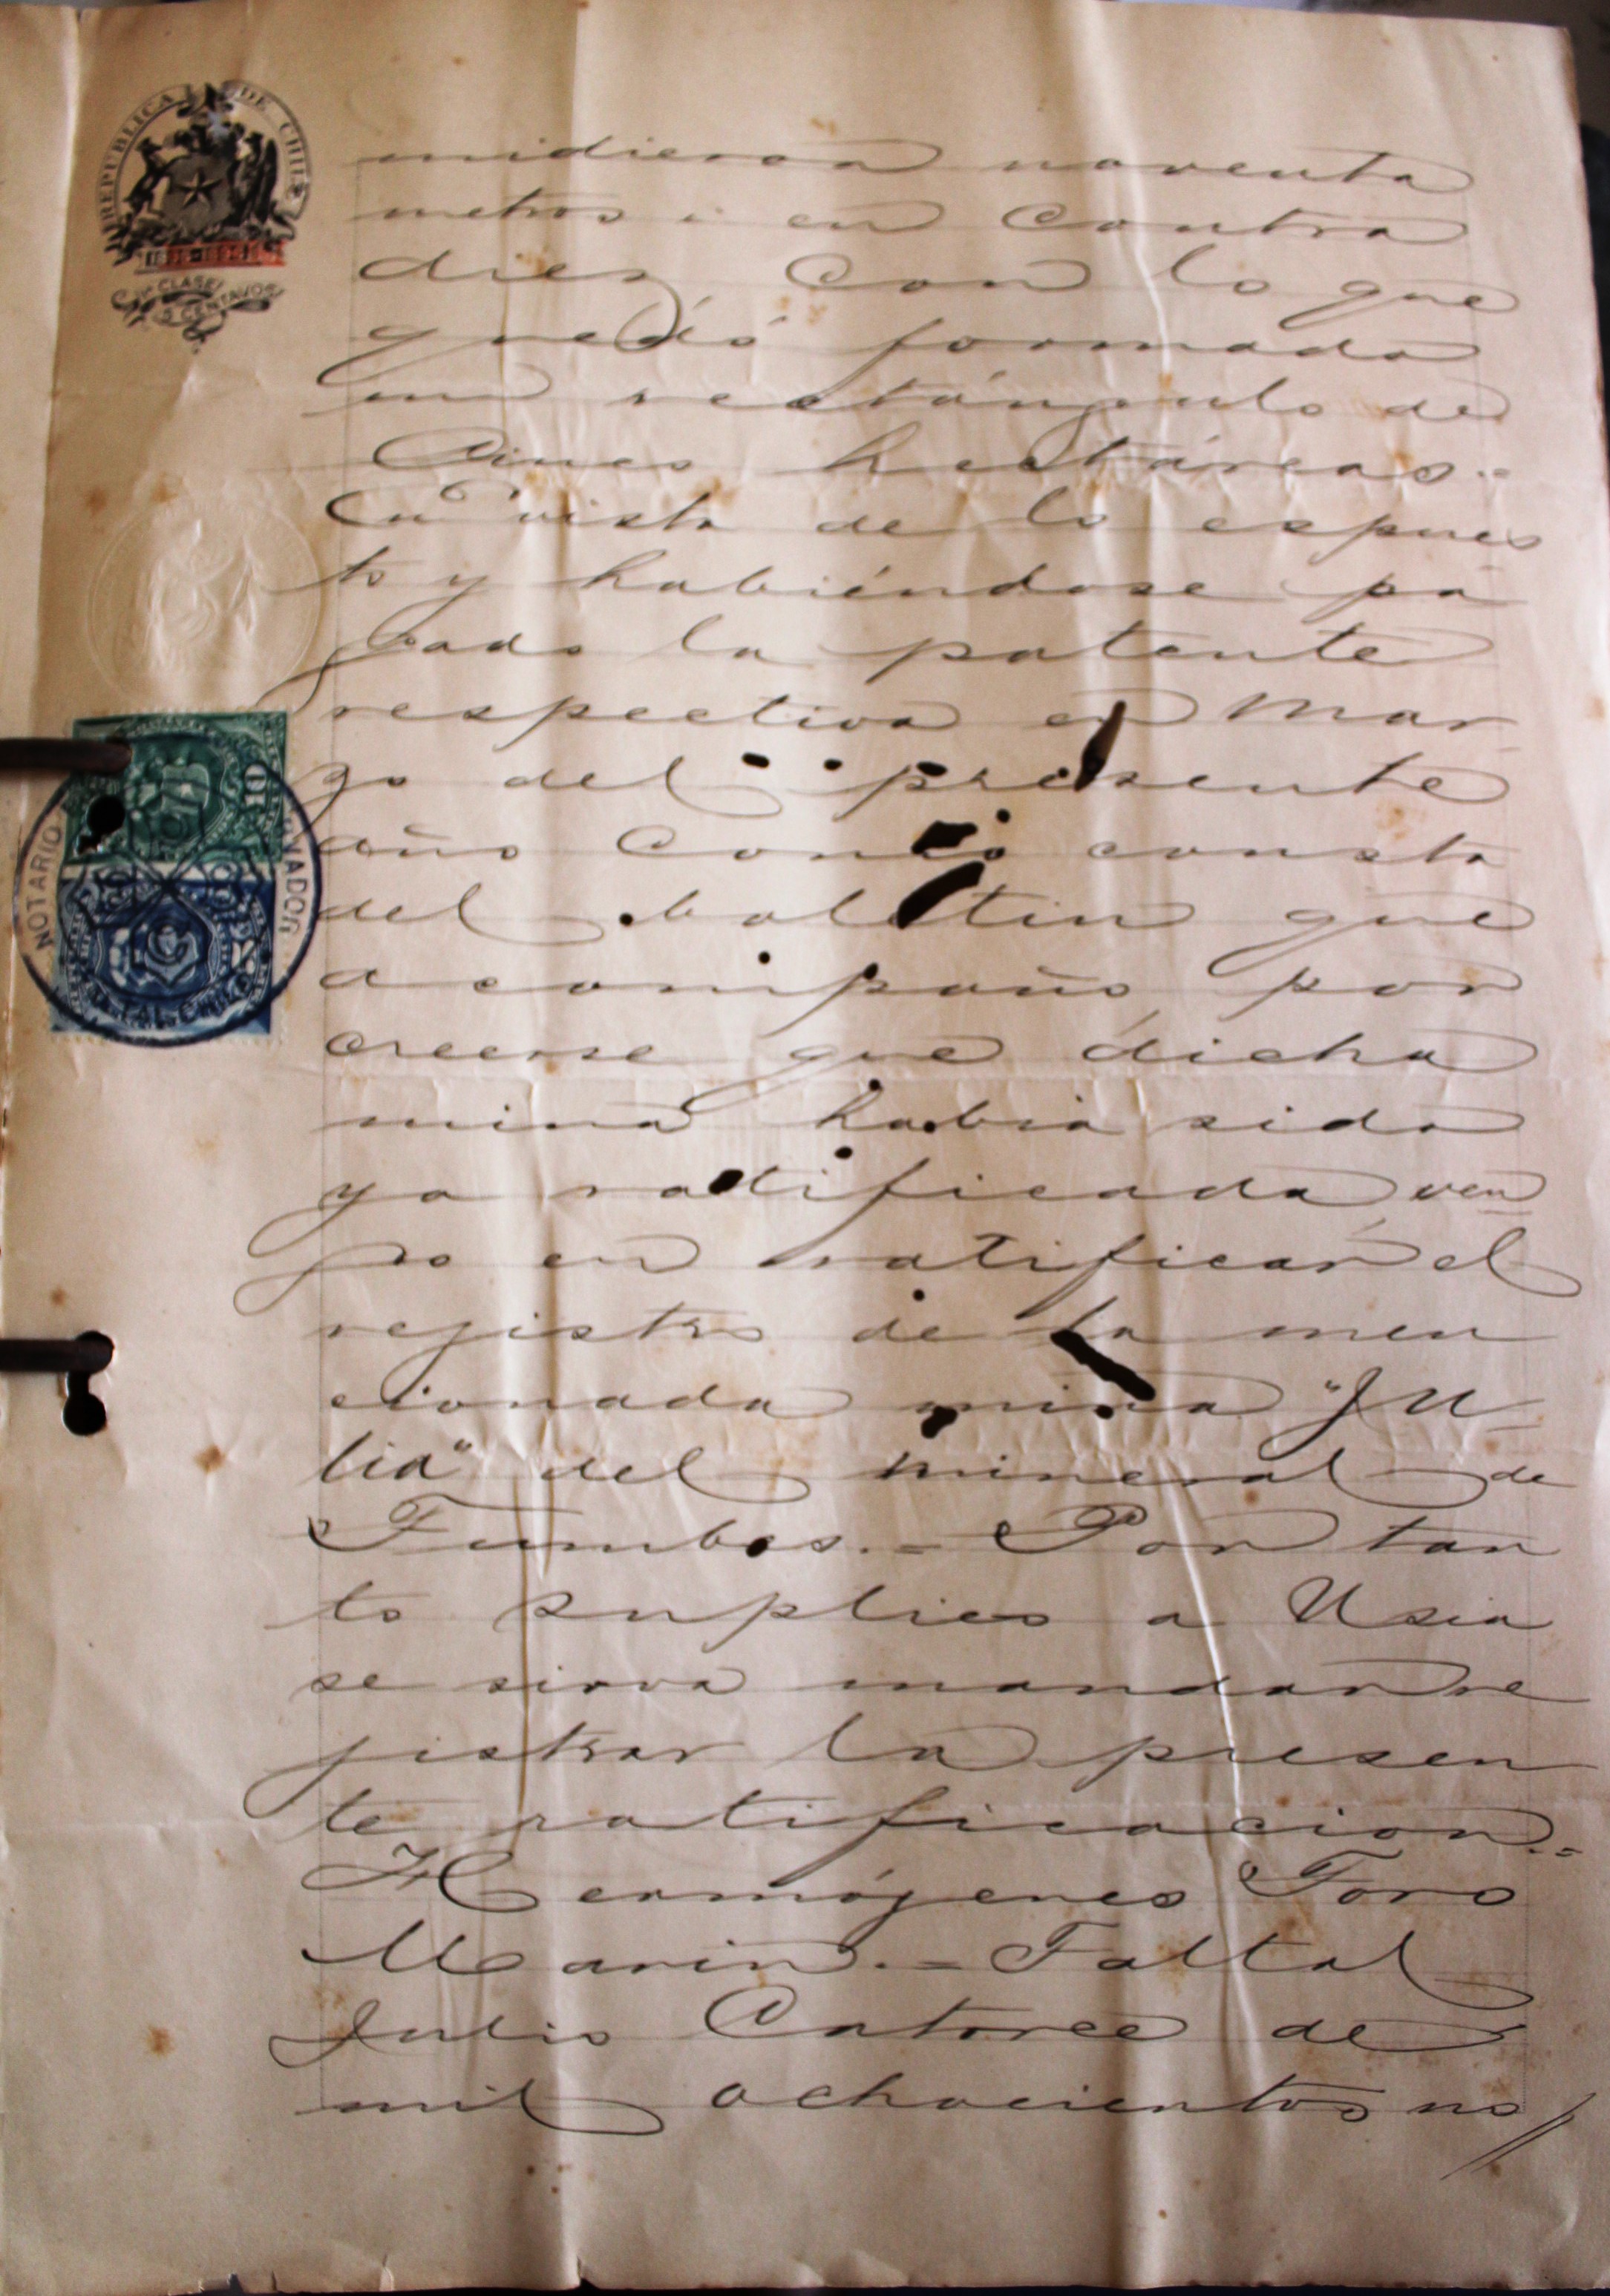 REPUBLICA DE CHILE
CLASE
CENTAVOS
midieron noventa
metros i en contra
diez con lo que
quedó formado
un rectángulo de
Cinco hectáreas.=
En vista de lo espues
to y habiéndose pa
gado la patente
respectiva en Mar
zo del presente
año Como consta
del boletin que
acompaño, por
creerse que dicha
mina habia sido
ya ratificada ven
go en ratificar el
rejistro de la men
cionada mina "Ju
lia" del mineral de
Tumbes.= Por tan
to suplico a Usia
se sirva mandar re
jistrar la presen
te ratificacion.=
Hermójenes Toro
Marin.= Taltal
Julio Catorce de
mil ochocientos no//
10
NOTARIO
TAL-CHILE